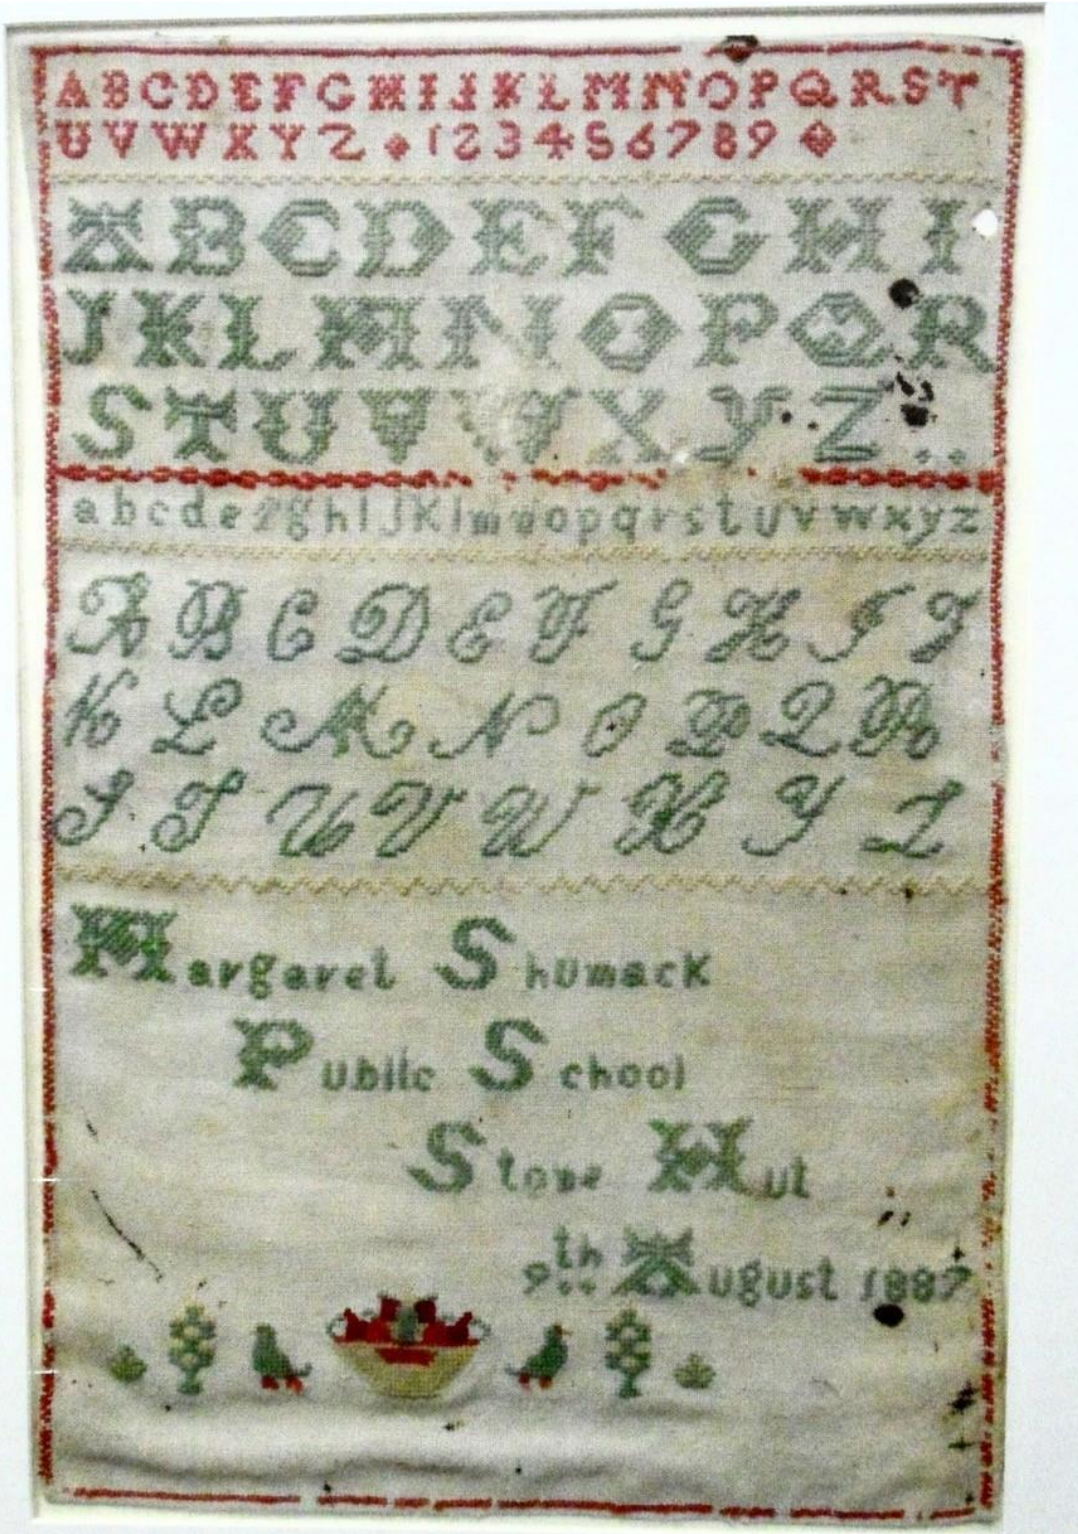 A B C D E F G H I J K L M N O P Q R S T
U V W X Y Z 1 2 3 4 5 6 7 8 9
A B C D E F G H I
J K L M N O P Q R
S T U V W X Y Z
a b c d e f g h i j k l m n o p q r s t u v w x y z
A B C D E F G H I J
K L M N O P Q R
S T U V W X Y Z
Margaret Shumack
Public School
Stone Hut
9th August 1887